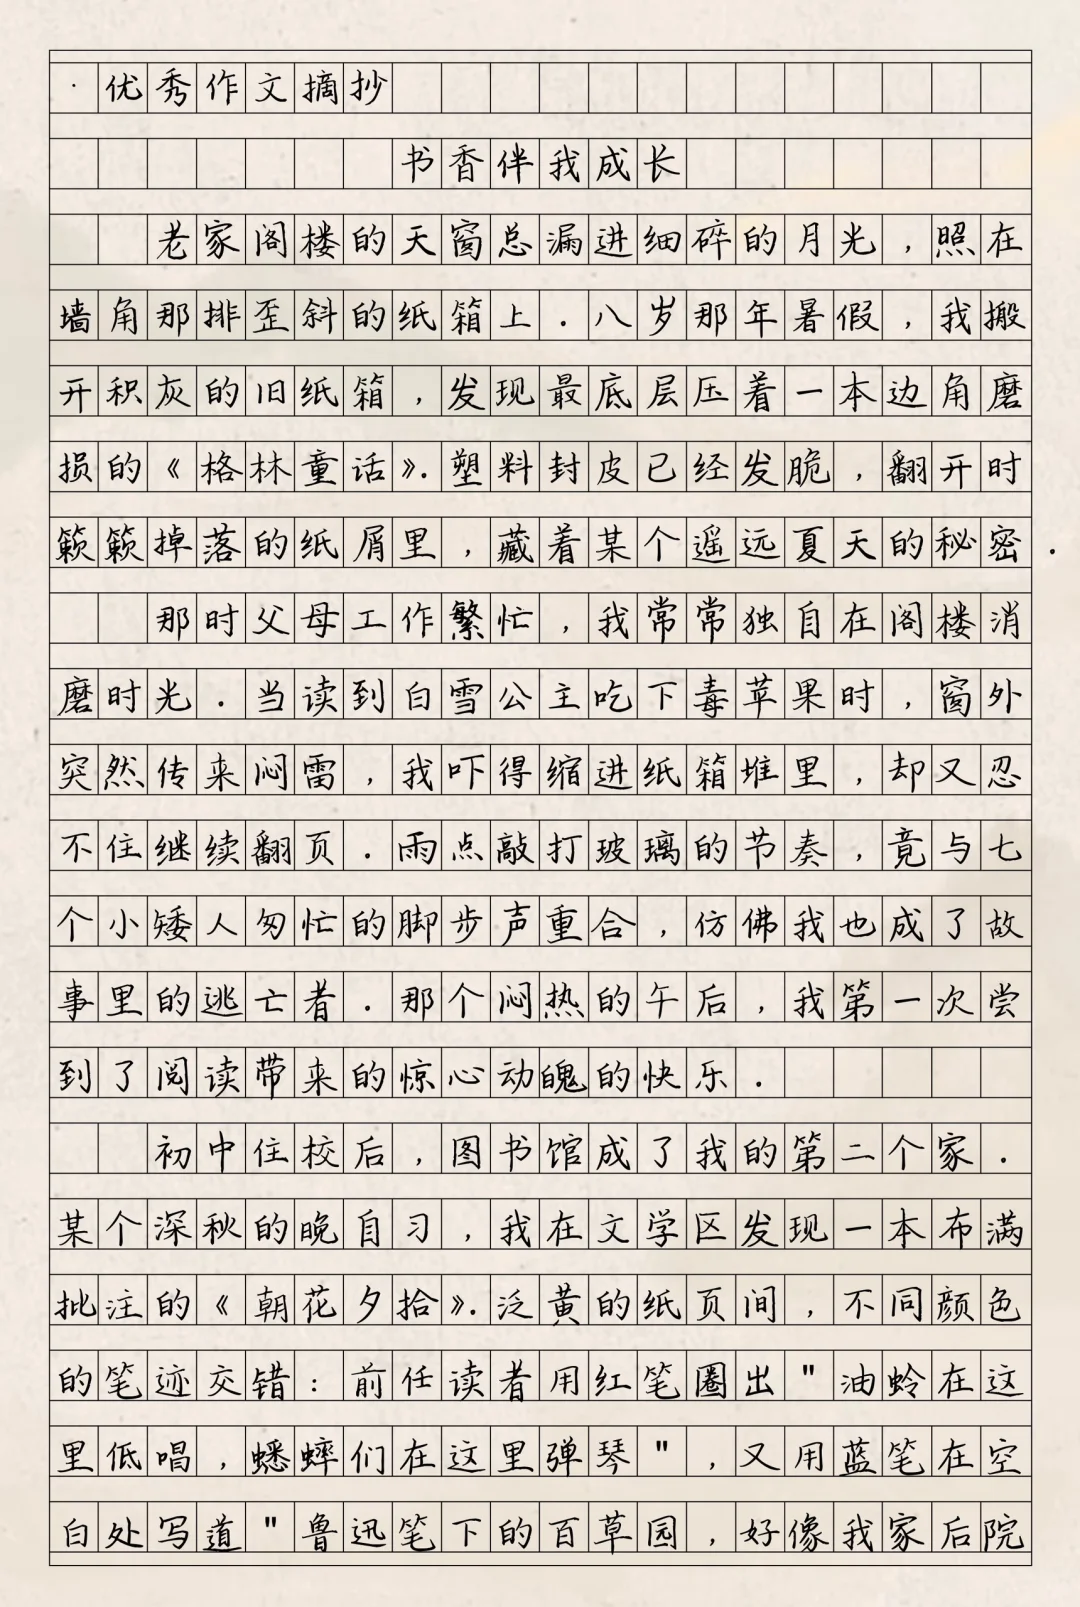 ·优秀作文摘抄
书香伴我成长
老家阁楼的天窗总漏进细碎的月光，照在
墙角那排歪斜的纸箱上．八岁那年暑假，我搬
开积灰的旧纸箱，发现最底层压着一本边角磨
损的《格林童话》．塑料封皮已经发脆，翻开时
簌簌掉落的纸屑里，藏着某个遥远夏天的秘密．
那时父母工作繁忙，我常常独自在阁楼消
磨时光．当读到白雪公主吃下毒苹果时，窗外
突然传来闷雷，我吓得缩进纸箱堆里，却又忍
不住继续翻页．雨点敲打玻璃的节奏，竟与七
个小矮人匆忙的脚步声重合，仿佛我也成了故
事里的逃亡者．那个闷热的午后，我第一次尝
到了阅读带来的惊心动魄的快乐．
初中住校后，图书馆成了我的第二个家．
某个深秋的晚自习，我在文学区发现一本布满
批注的《朝花夕拾》．泛黄的纸页间，不同颜色
的笔迹交错：前任读者用红笔圈出"油蛉在这
里低唱，蟋蟀们在这里弹琴"，又用蓝笔在空
白处写道"鲁迅笔下的百草园，好像我家后院